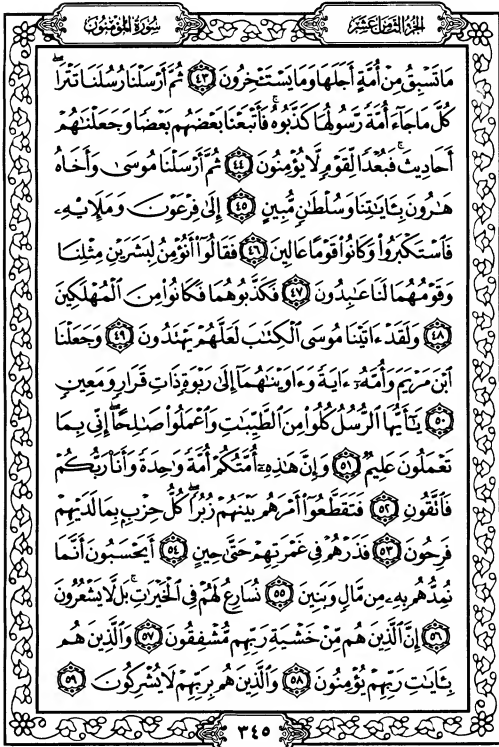 الجزء الثامن عشر
سورة المؤمنون
مَا تَسْبِقُ مِنْ أُمَّةٍ أَجَلَهَا وَمَا يَسْتَـْٔخِرُونَ ٤٣ ثُمَّ أَرْسَلْنَا رُسُلَنَا تَتْرَاۖ
كُلَّ مَا جَآءَ أُمَّةً رَّسُولُهَا كَذَّبُوهُۚ فَأَتْبَعْنَا بَعْضَهُم بَعْضًا وَجَعَلْنَٰهُمْ
أَحَادِيثَۚ فَبُعْدًا لِّقَوْمٍ لَّا يُؤْمِنُونَ ٤٤ ثُمَّ أَرْسَلْنَا مُوسَىٰ وَأَخَاهُ
هَٰرُونَ بِـَٔايَٰتِنَا وَسُلْطَٰنٍ مُّبِينٍ ٤٥ إِلَىٰ فِرْعَوْنَ وَمَلَإِي۟هِۦ
فَٱسْتَكْبَرُوا۟ وَكَانُوا۟ قَوْمًا عَالِينَ ٤٦ فَقَالُوٓا۟ أَنُؤْمِنُ لِبَشَرَيْنِ مِثْلِنَا
وَقَوْمُهُمَا لَنَا عَٰبِدُونَ ٤٧ فَكَذَّبُوهُمَا فَكَانُوا۟ مِنَ ٱلْمُهْلَكِينَ
٤٨ وَلَقَدْ ءَاتَيْنَا مُوسَى ٱلْكِتَٰبَ لَعَلَّهُمْ يَهْتَدُونَ ٤٩ وَجَعَلْنَا
ٱبْنَ مَرْيَمَ وَأُمَّهُۥٓ ءَايَةً وَءَاوَيْنَٰهُمَآ إِلَىٰ رَبْوَةٍ ذَاتِ قَرَارٍ وَمَعِينٍ
٥٠ يَٰٓأَيُّهَا ٱلرُّسُلُ كُلُوا۟ مِنَ ٱلطَّيِّبَٰتِ وَٱعْمَلُوا۟ صَٰلِحًاۖ إِنِّى بِمَا
تَعْمَلُونَ عَلِيمٌ ٥١ وَإِنَّ هَٰذِهِۦٓ أُمَّتُكُمْ أُمَّةً وَٰحِدَةً وَأَنَا۠ رَبُّكُمْ
فَٱتَّقُونِ ٥٢ فَتَقَطَّعُوٓا۟ أَمْرَهُم بَيْنَهُمْ زُبُرًاۖ كُلُّ حِزْبٍۭ بِمَا لَدَيْهِمْ
فَرِحُونَ ٥٣ فَذَرْهُمْ فِى غَمْرَتِهِمْ حَتَّىٰ حِينٍ ٥٤ أَيَحْسَبُونَ أَنَّمَا
نُمِدُّهُم بِهِۦ مِن مَّالٍ وَبَنِينَ ٥٥ نُسَارِعُ لَهُمْ فِى ٱلْخَيْرَٰتِۚ بَل لَّا يَشْعُرُونَ
٥٦ إِنَّ ٱلَّذِينَ هُم مِّنْ خَشْيَةِ رَبِّهِم مُّشْفِقُونَ ٥٧ وَٱلَّذِينَ هُم
بِـَٔايَٰتِ رَبِّهِمْ يُؤْمِنُونَ ٥٨ وَٱلَّذِينَ هُم بِرَبِّهِمْ لَا يُشْرِكُونَ ٥٩
٣٤٥